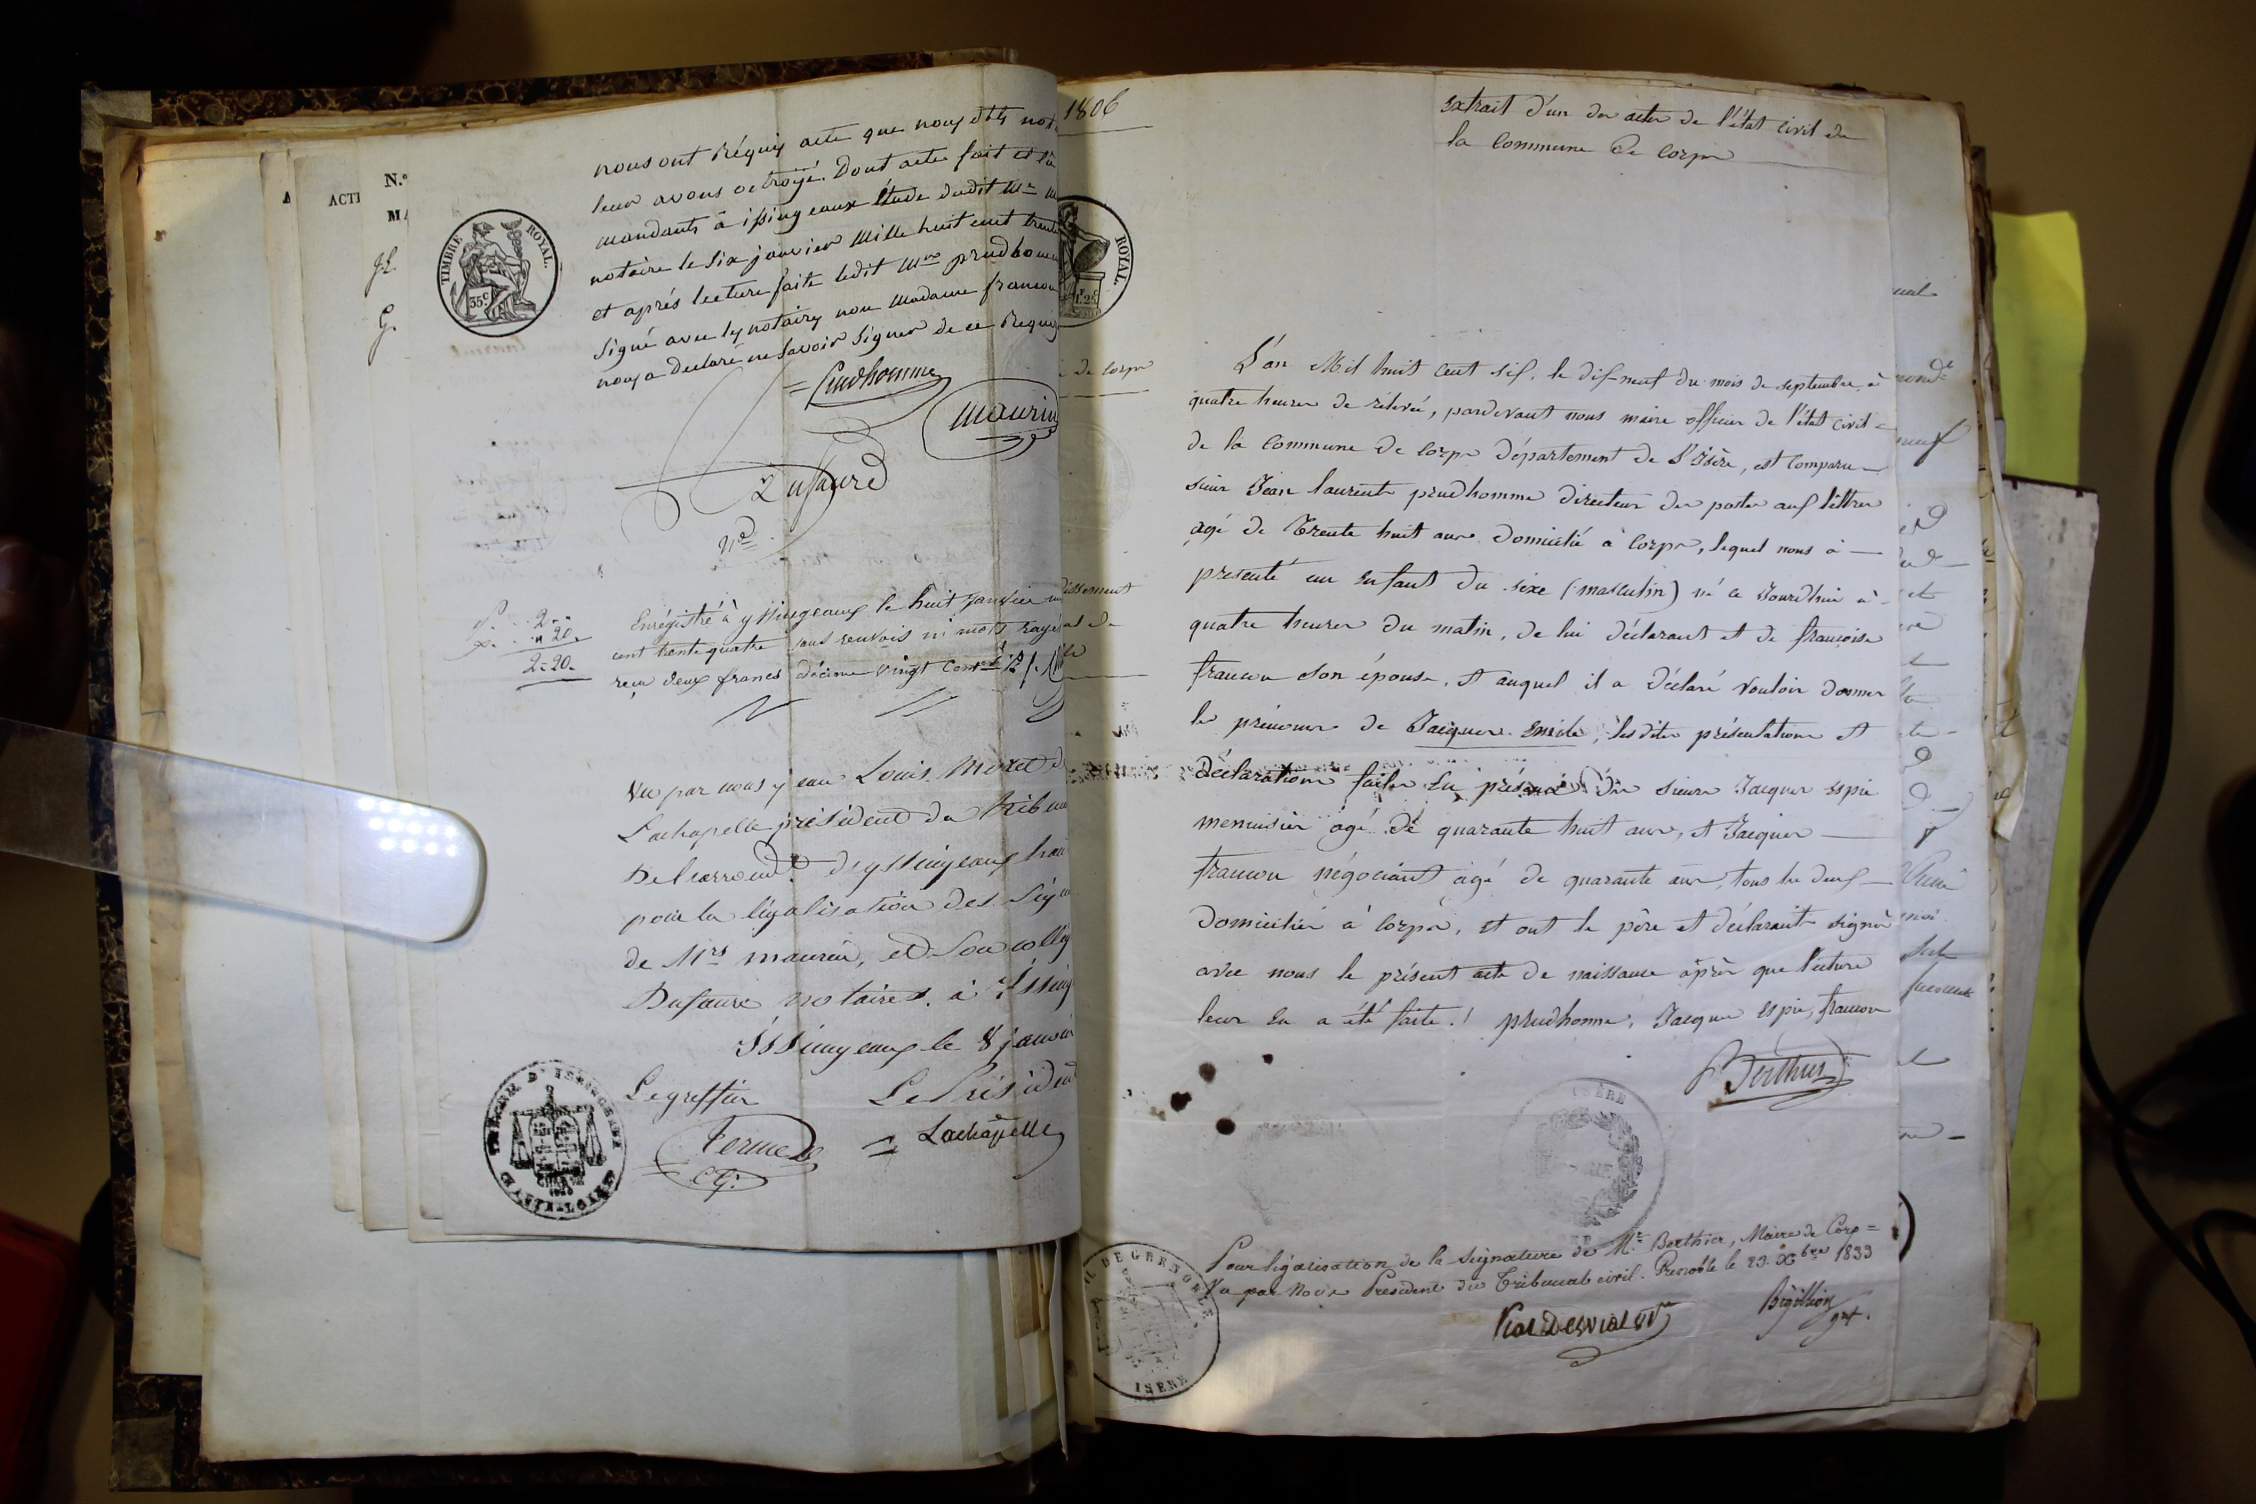 N.°
ACTE
nous ont Réquis acte que nous dits
leur avons octroyé. Dont acte fait et
mandants à issingeaux Étude dudit Mr
notaire le six janvier Mille huit cent trente
et après lecture faite ledit Mre prudhomme
signé avec les notaires non Madame francou
nous a déclaré ne savoir signer de ce Requis
TIMBRE ROYAL.
35c
Prudhomme
Maurin
Dufaure
Nre
2..
" 20.
2=20.
Enrégistré à yssingeaux le huit janvier
cent trente quatre sans renvois ni mots rayés
reçu deux francs décime vingt centes
Vu par nous jean Louis Moret de
Lachapelle président du tribunal
De l'arrondt. d'yssingeaux
pour la légalisation des Sig
de Mrs maurin, et Son collég
Dufaure notaires. à yssing
Issingeaux le 8 janvier
Le greffier
Le Président
Lachapelle
1806
ROYAL.
de corps
extrait d'un des actes de l'état civil de
la Commune de Corps
L'an Mil huit cent six, le dix neuf du mois de septembre, à
quatre heures de rélévée, pardevant nous maire officier de l'état civil
de la Commune de Corps département de l'Isère, est comparu
sieur Jean laurent prudhomme directeur des postes aux lettres
agé de trente huit ans domicilié à Corps, lequel nous à
présenté un enfant du sexe (masculin) né ce Jourdhui à
quatre heures du matin, de lui déclarant et de françoise
francou son épouse, et auquel il a déclaré vouloir donner
les prénoms de Jacques Emile, lesdites présentations et
déclarations faites en présence des sieurs Jacques espié
menuisier agé de quarante huit ans, et Jacques
francou négociant agé de quarante ans, tous les deux
domiciliés à Corps, et ont le père et déclarants signés
avec nous le présent acte de naissance après que lecture
leur en a été faite. ! prudhomme, Jacques espié, francou
Berthier
ISÈRE
Pour légalisation de la signature de Mr. Berthier, Maire de Corps =
Vu par Nous Président du Tribunal civil. Grenoble le 23. Xbre 1833
DE GRENOBLE
ISERE